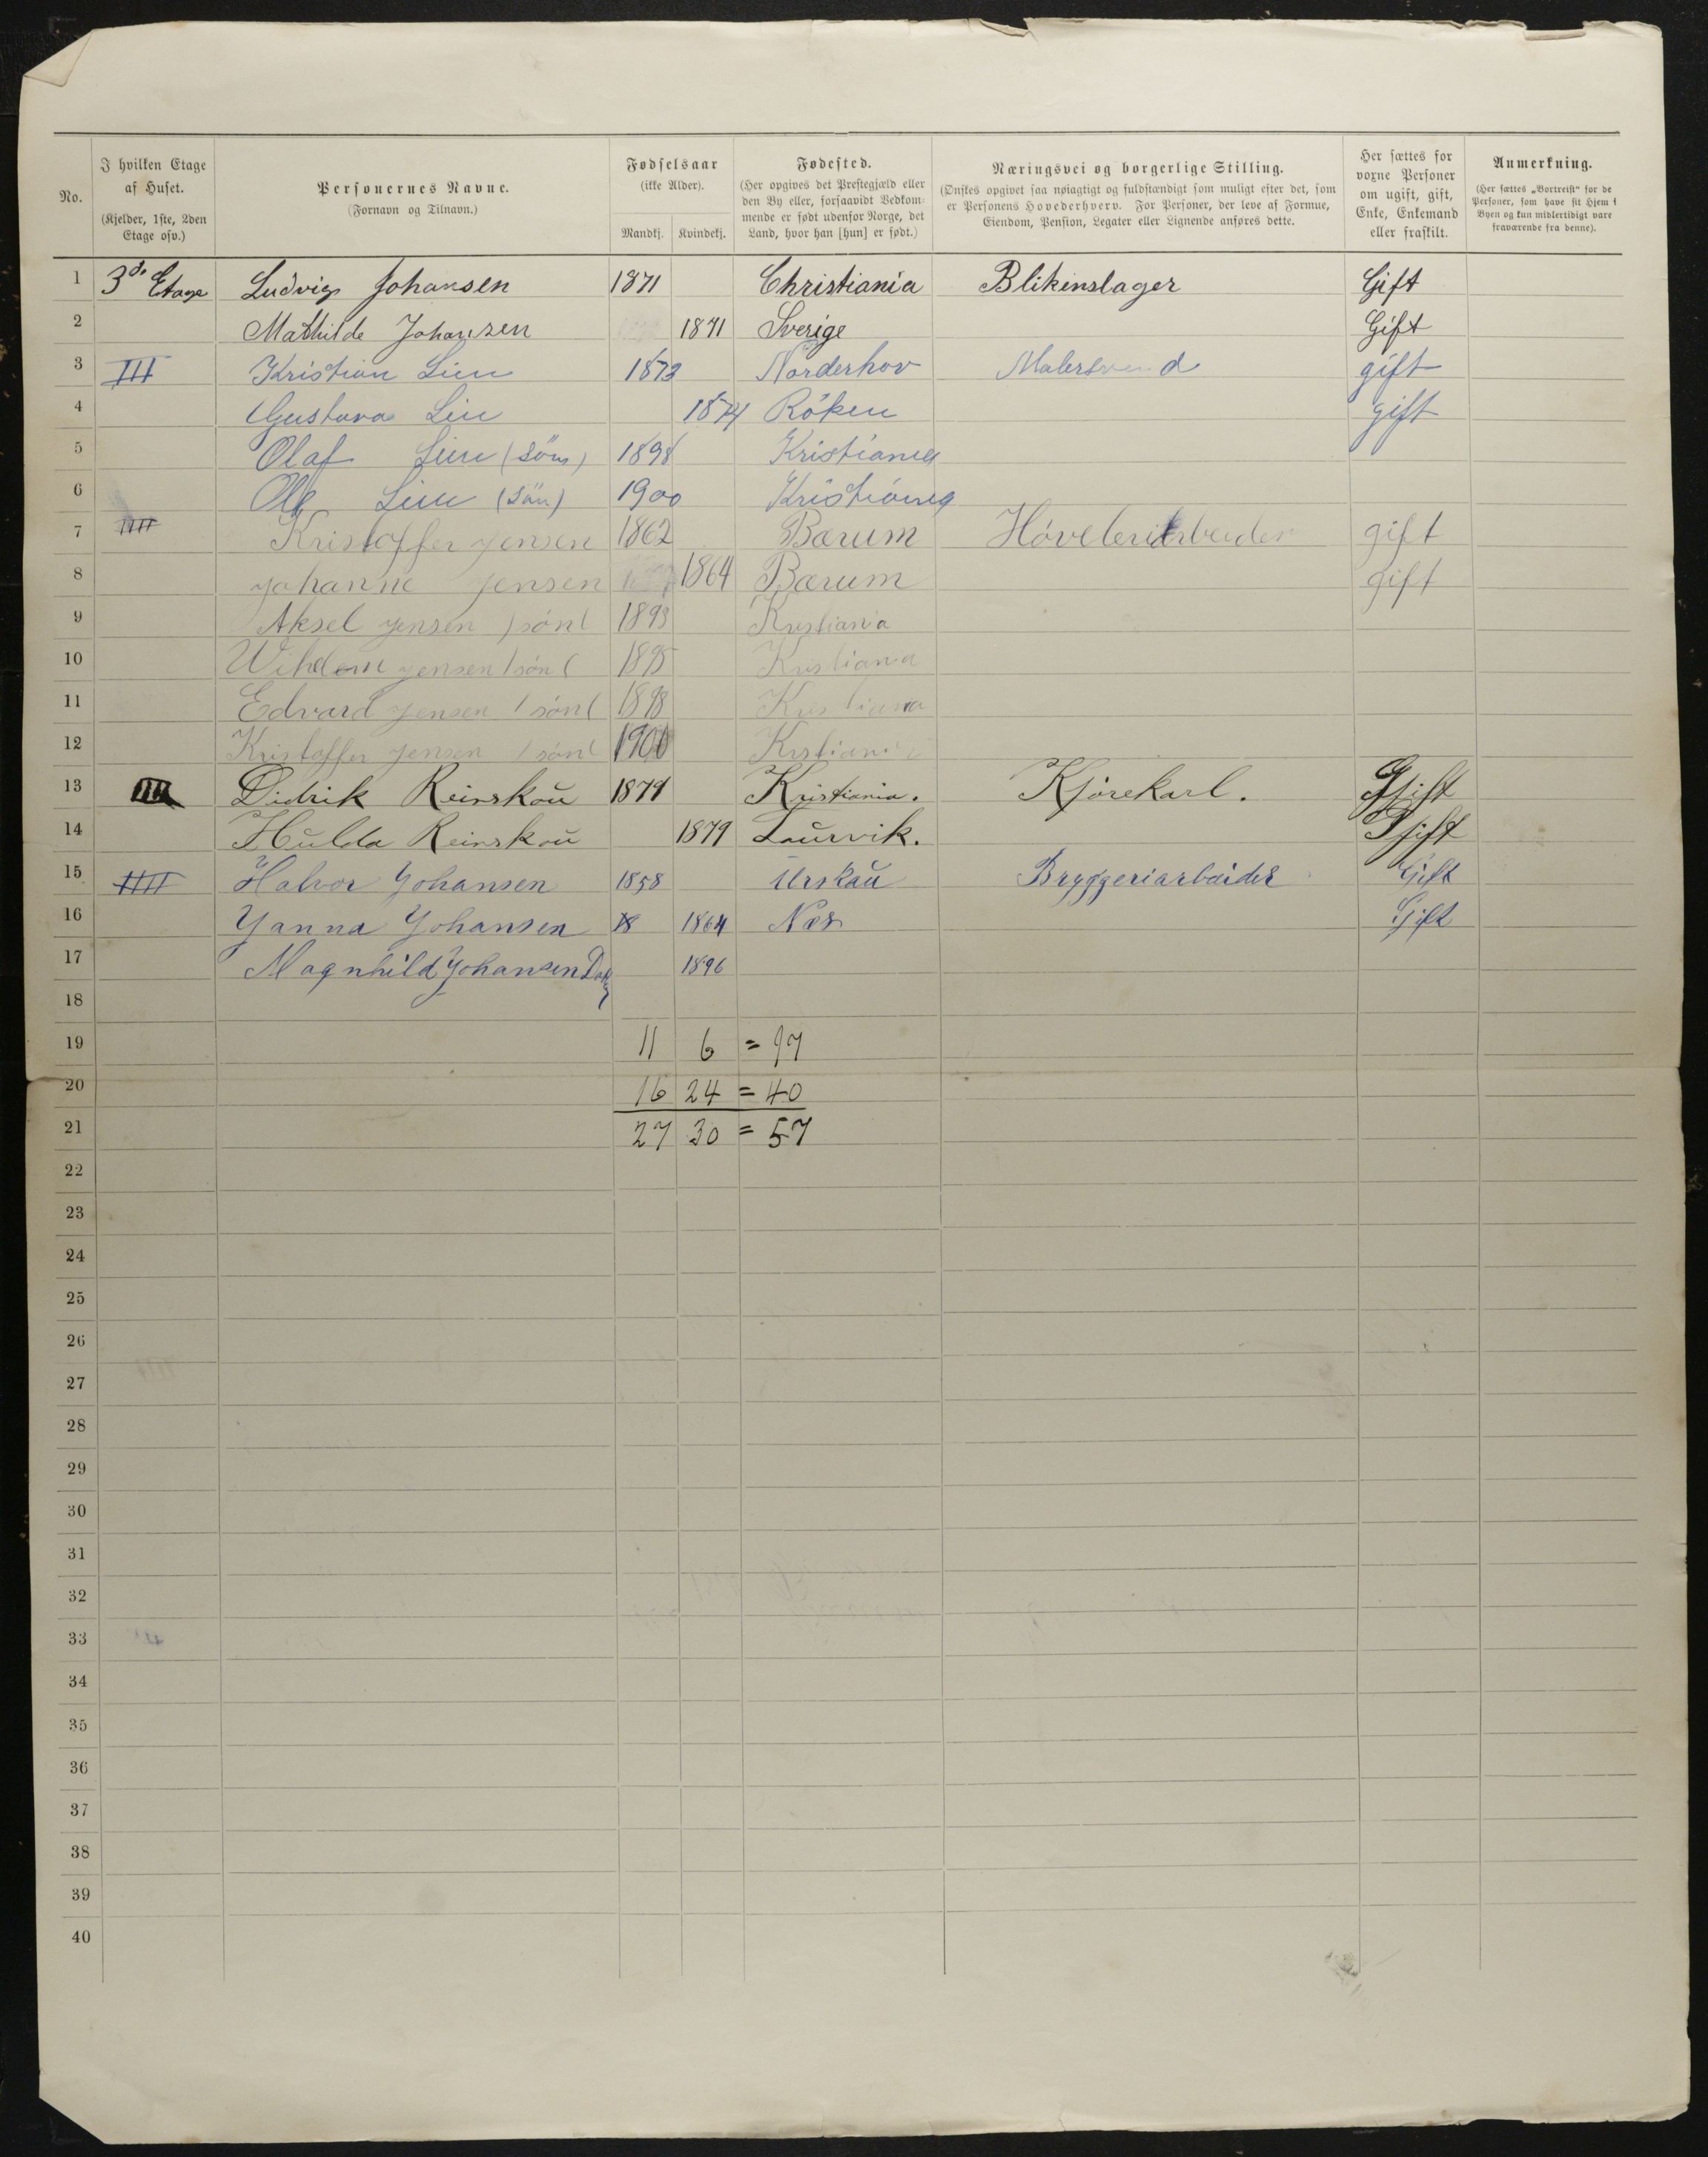 No.
I hvilken Etage af Huset.
(Kjelder, 1ste, 2den Etage osv.)
Personernes Navne.
(Fornavn og Tilnavn.)
Fødselsaar
(ikke Alder).
Mandkj. Kvindekj.
Fødested.
(Her opgives det Prestegjæld eller den By eller, forsaavidt Vedkommende er født udenfor Norge, det Land, hvor han [hun] er født.)
Næringsvei og borgerlige Stilling.
(Ønskes opgivet saa nøiagtigt og fuldstændigt som muligt efter det, som er Personens Hovederhverv. For Personer, der leve af Formue, Eiendom, Pension, Legater eller Lignende anføres dette.
Her sættes for voxne Personer om ugift, gift, Enke, Enkemand eller fraskilt.
Anmerkning.
(Her sættes „Bortreist" for de Personer, som have sit Hjem i Byen og kun midlertidigt vare fraværende fra denne).
1 3de Etage Ludvig Johansen 1871 Christiania Blikenslager Gift
2 Mathilde Johansen 1871 Sverige Gift
3 III Kristian Lien 1873 Norderhov Malersvend gift
4 Gustava Lien 1874 Røken gift
5 Olaf Lien (Sön) 1898 Kristiania
6 Ole Lien (Sön) 1900 Kristiania
7 IIII Kristoffer Jensen 1862 Bærum Høvleriarbeider gift
8 Johanne Jensen 1864 Bærum gift
9 Aksel Jensen )søn( 1893 Kristiania
10 Jensen )søn( 1895 Kristiania
11 Edvard Jensen )søn( 1898 Kristiania
12 Kristoffer Jensen )søn( 1900 Kristiania
13 Didrik Reinskoŭ 1879 Kristiania. Kjørekarl. Gift
14 Hŭlda Reinskoŭ 1879 Laŭrvik. Gift
15 IIII Halvor Johansen 1858 Urskaŭ Bryggeriarbeider Gift
16 Janna Johansen 18 1864 Næs Gift
17 Magnhild Johansen 1896
18
19 11 6 = 17
20 16 24 = 40
21 27 30 = 57
22
23
24
25
26
27
28
29
30
31
32
33
34
35
36
37
38
39
40